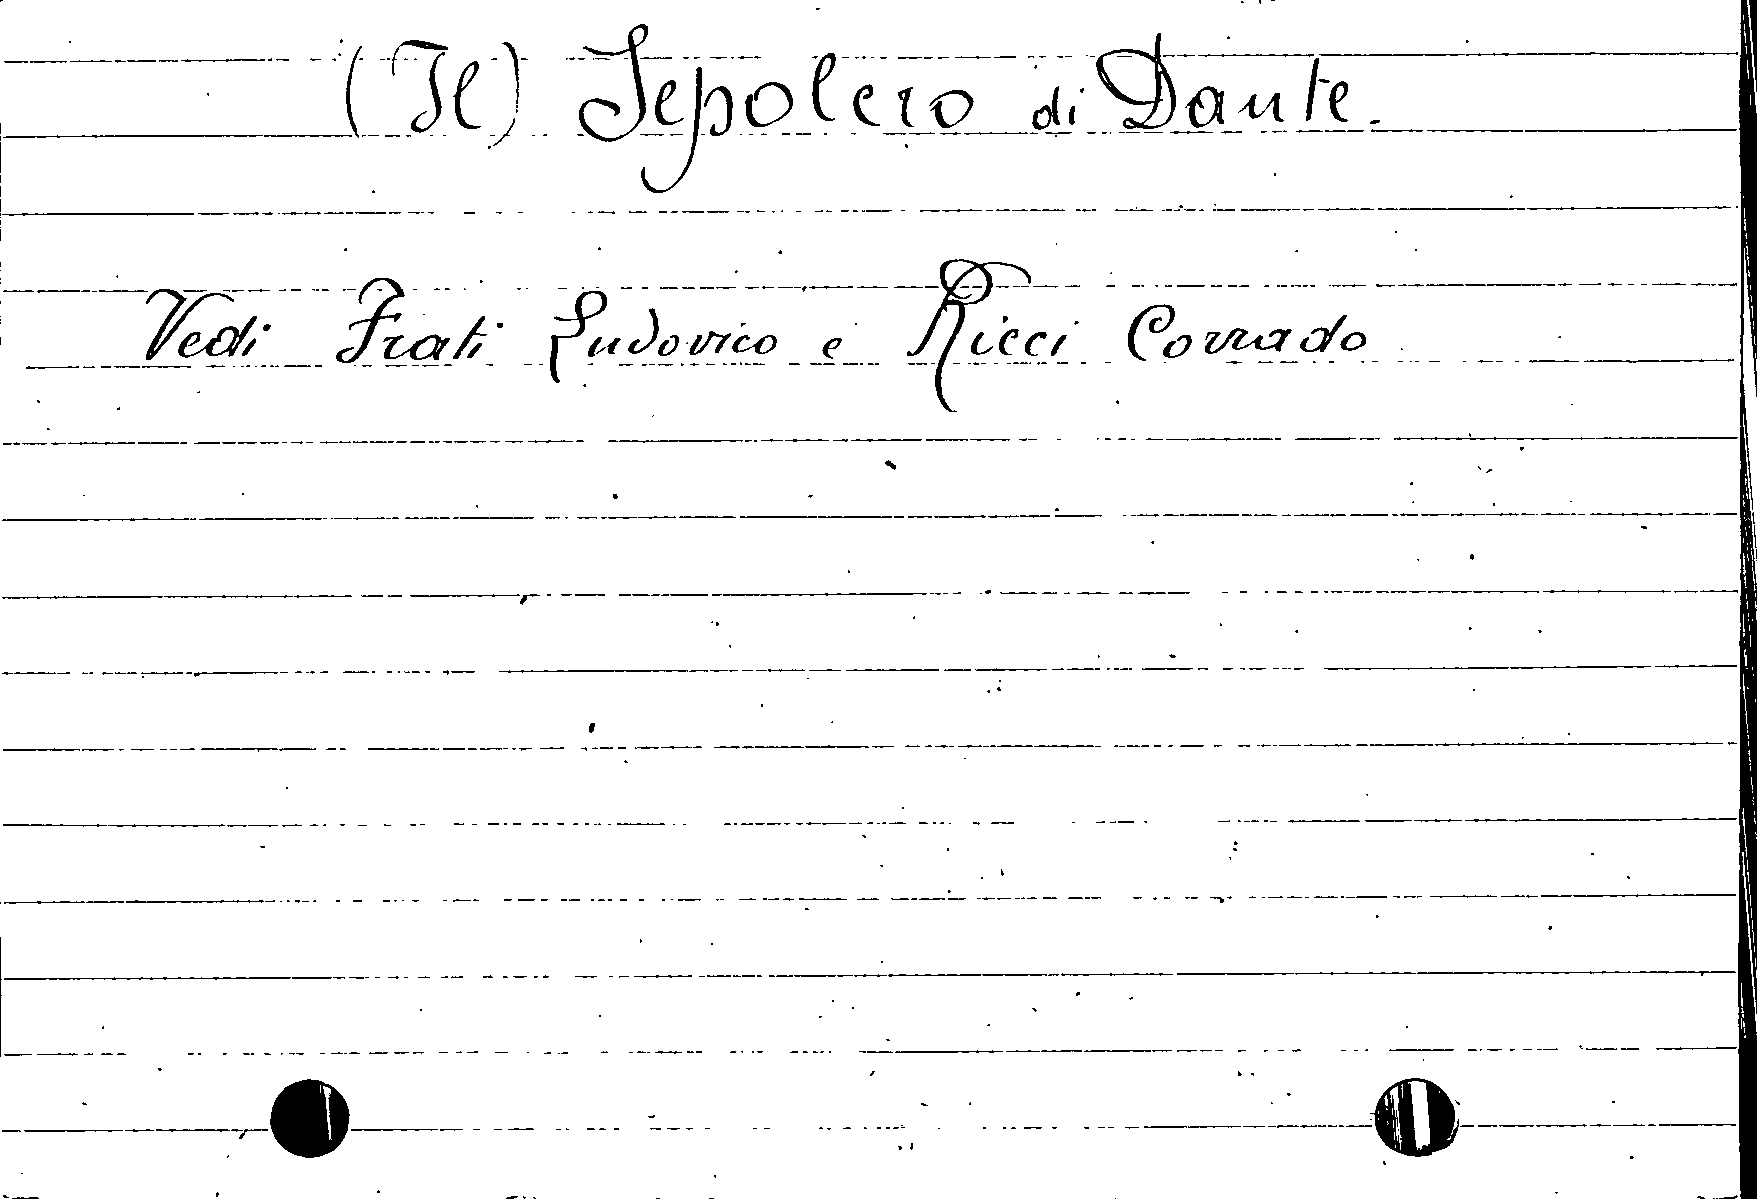 (Il) Sepolcro di Dante.
Vedi Frati Ludovico e Ricci Corrado